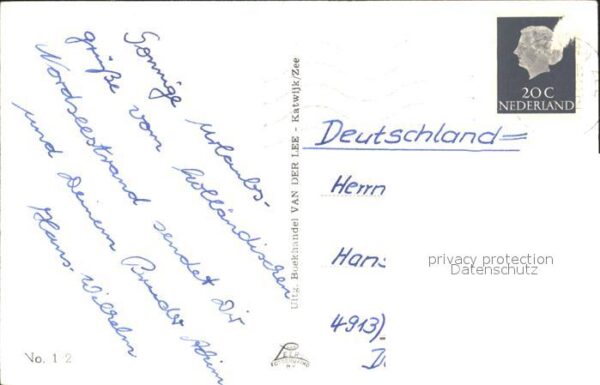 Sonnige Urlaubs-
grüße vom holländischen
Nordseestrand sendet Dir
und Deinem Bruder Achim
Hans-Wilhelm
No. 1 2
Uitg. Boekhandel VAN DER LEE - Katwijk/Zee
20 C
NEDERLAND
Deutschland
Herrn
Hans
4913)
D
privacy protection
Datenschutz